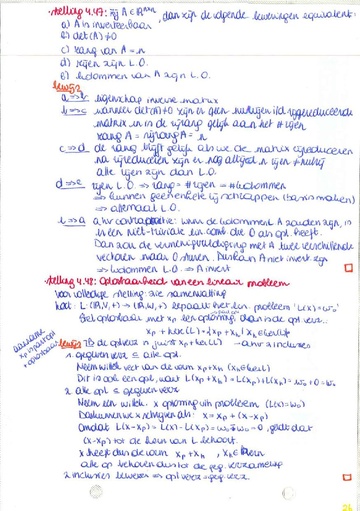 stelling 4.47: zij A ∈ ℝⁿˣⁿ, dan zijn de volgende beweringen equivalent:
a) A is inverteerbaar
b) det(A) ≠ 0
c) rang van A = n
d) rijen zijn L.O.
e) kolommen van A zijn L.O.
Bewijs
a ⟹ b eigenschap inverse matrix
b ⟹ c wanneer det(A) ≠ 0 zijn er geen nulrijen i/d rijgereduceerde
matrix en is de rijrang gelijk aan het # rijen
rang A = rijrang A = n
c ⟹ d de rang blijft gelijk als we de matrix rijreduceren
na rijreduceren zijn er nog altijd n rijen ≠ nulrij
alle rijen zijn dan L.O.
d ⟹ e rijen L.O. ⟹ rang = # rijen = # kolommen
⟹ kunnen geen enkele schrappen (basis maken)
⟹ allemaal L.O.
e ⟹ a wnr de kolommen L.A zouden zijn, is
er een niet-triviale lin comb die 0 als opl. heeft.
Dan zou de vermenigvuldiging met A twee verschillende
vectoren naar 0 sturen. Dus kan A niet invert zijn
⟹ kolommen L.O. ⟹ A invert
stelling 4.48: Oplosbaarheid van een lineair probleem
voor volledige stelling: zie samenvatting
L: (ℝ,V,+) → (ℝ,W,+) bepaalt een lin. probleem L(x) = w₀
Stel oplosbaar met xp één oplossing, dan is de opl. verz.
xp + ker(L) = {xp + xk | xk ∈ ker(L)}
Bewijs is juist xp + ker(L) → a.h.v 2 inclusies
1. gegeven verz ⊆ alle opl.
Neem willek vect van de vorm xp + xk (xk ∈ ker L)
Dit is ook een opl, want L(xp + xk) = L(xp) + L(xk) = w₀ + 0 = w₀
2. alle opl ⊆ gegeven verz
Neem een willek. x oplossing v/h probleem (L(x) = w₀)
Dan kunnen we x schrijven als: x = xp + (x - xp)
Omdat L(x - xp) = L(x) - L(xp) = w₀ - w₀ = 0, geldt dat
(x - xp) tot de kern van L behoort.
x heeft dus de vorm xp + xk, xk ∈ kern
alle opl behoren dus tot de geg. verzameling
2 inclusies bewezen ⟹ opl verz = geg. verz.